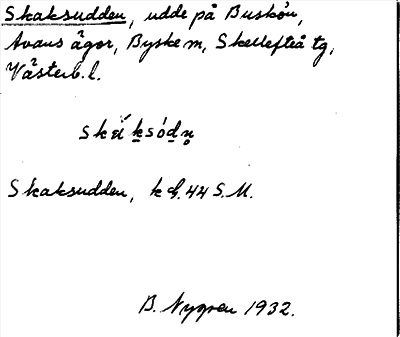 Skaksudden, udde på Buskön,
Avans ägor, Byske m, Skellefteå tg,
Västerb. l.
Skaksudden, k bl. 44 S.M.
B. Nygren 1932.